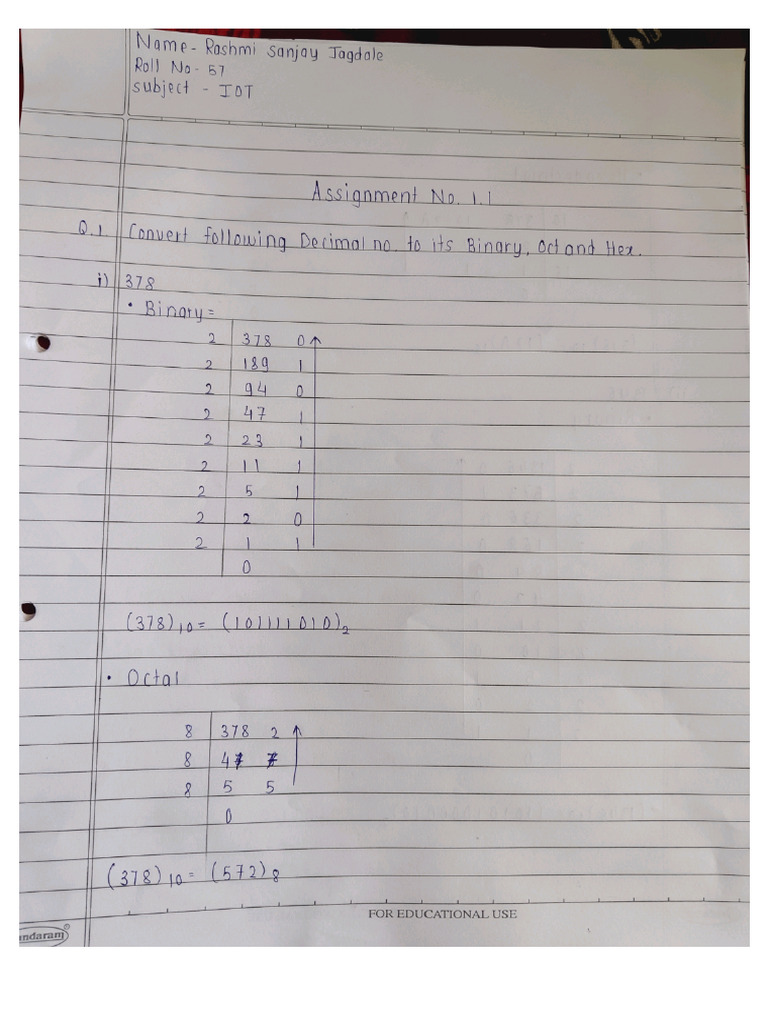 Name - Rashmi Sanjay Jagdale
Roll No - 57
subject - IOT
Assignment No. 1.1
Q.1 Convert following Decimal no. to its Binary, Oct and Hex.
i) 378
• Binary =
2 378 0
2 189 1
2 94 0
2 47 1
2 23 1
2 11 1
2 5 1
2 2 0
2 1 1
0
(378)10 = (101111010)2
• Octal
8 378 2
8 47 7
8 5 5
0
(378)10 = (572)8
FOR EDUCATIONAL USE
ndaram